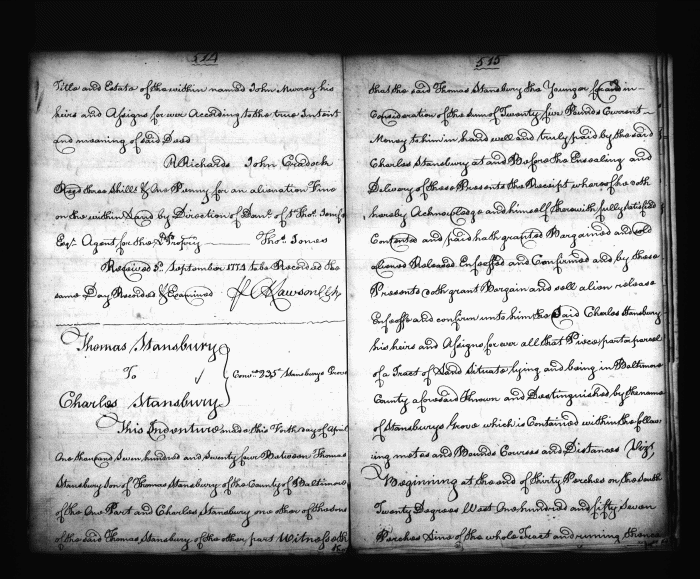 514
Title and Estate of the within named John Murray his
heirs and Assigns for ever According to the true Intent
and meaning of said Deed
R Richards John Cradock
Recd three Shills & One Penny for an alienation Fine
on the within Land by Direction of Danl. of St Thos. Jenifer
Esqr. Agent for the Ld Propriy Thos. Jones
Received Septemb 1774 to be Recorded the
same Day Recorded & Examined Lawson Clk
Thomas Stansbury
To
Charles Stansbury
Convce 235 Stansburys Grove
This Indenture made this day of April
One thousand Seven hundred and Seventy four Between Thomas
Stansbury Son of Thomas Stansbury of the County of Baltimore
of the One Part and Charles Stansbury one other of the Sons
of the said Thomas Stansbury of the other part Witnesseth
515
that the said Thomas Stansbury the Younger for and in
Consideration of the Sum of Twenty five Pounds Current
Money to him in hand well and truly paid by the said
Charles Stansbury at and Before the Ensealing and
Delivery of these Presents the Receipt whereof he doth
hereby Acknowledge and himself therewith fully Satisfied
Contented and paid hath granted Bargained and sold
aliened Released Enfeoffed and Confirmed and by these
Presents doth grant Bargain and sell alien release
Enfeoff and confirm unto him the Said Charles Stansbury
his heirs and Assigns for ever all that Piece part or parcel
of a Tract of Land Situate lying and being in Baltimore
County aforesaid Known and Distinguished by the name
of Stansburys Grove which is Contained within the follow
ing metes and Bounds Courses and Distances Vizt,
Beginning at the end of thirty Perches on the South
Twenty Degrees West One hundred and fifty Seven
Perches Line of the whole Tract and running thence